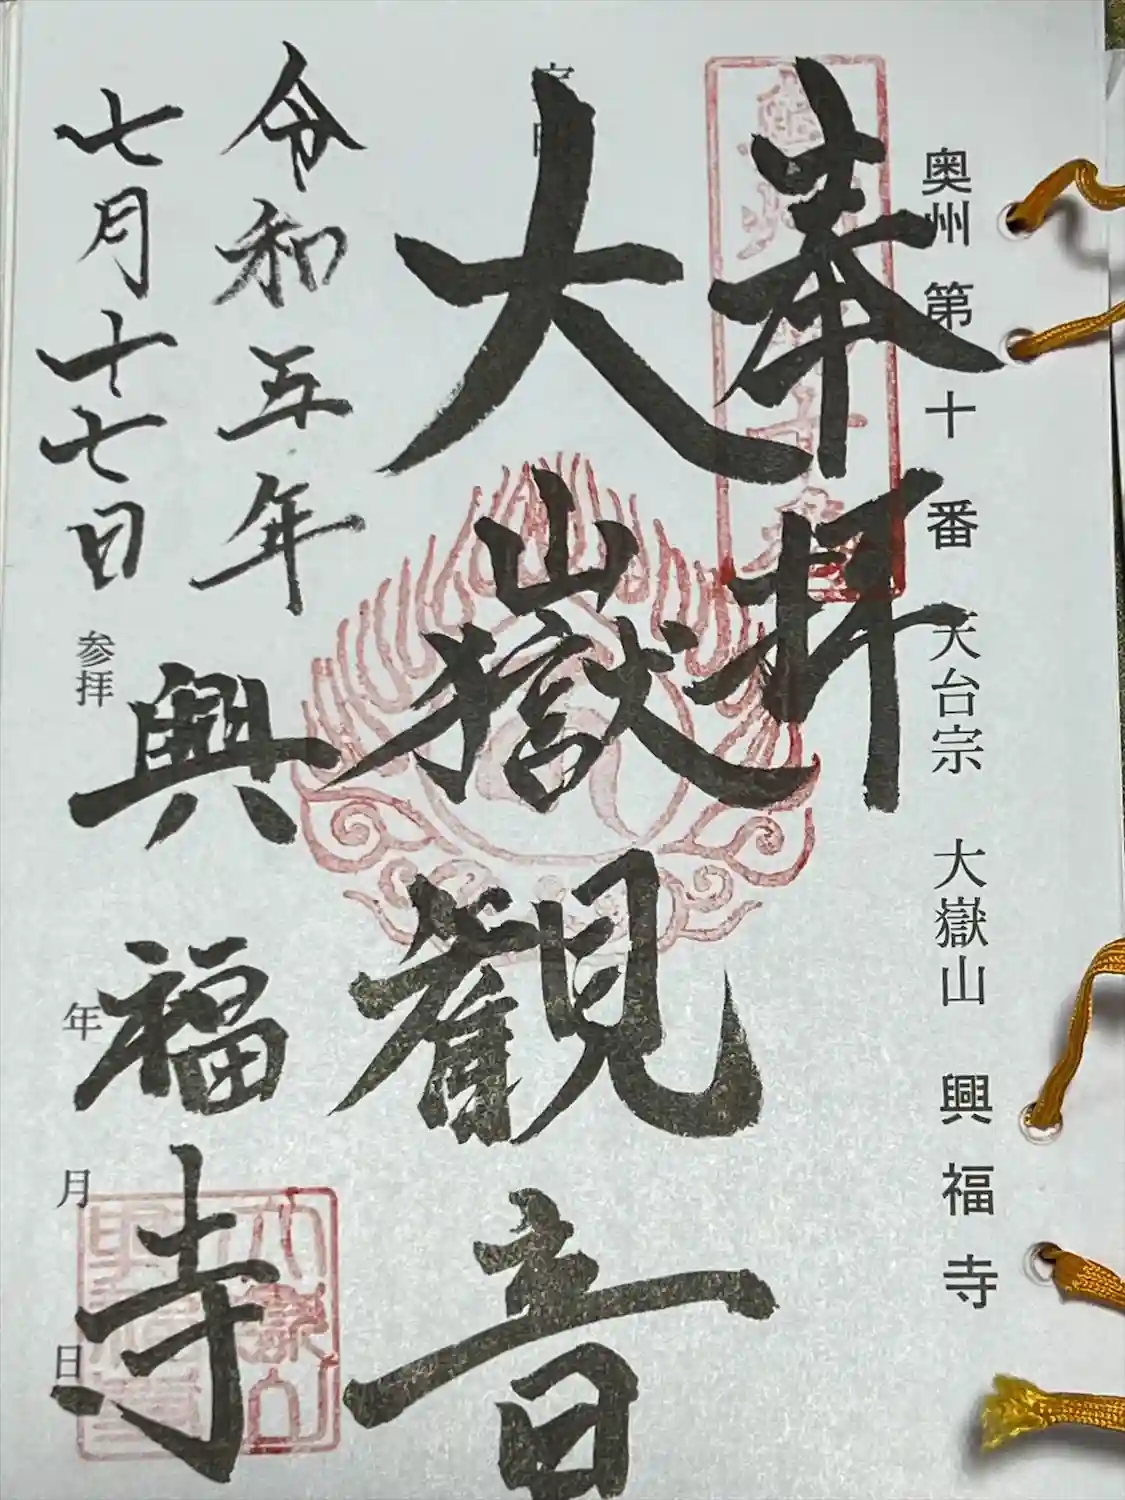 奥州 第 十 番 天台宗 大嶽山 興 福 寺
奉拝
大嶽観音
令和五年
七月十七日
参拝
年 月 日
興福寺
大嶽山